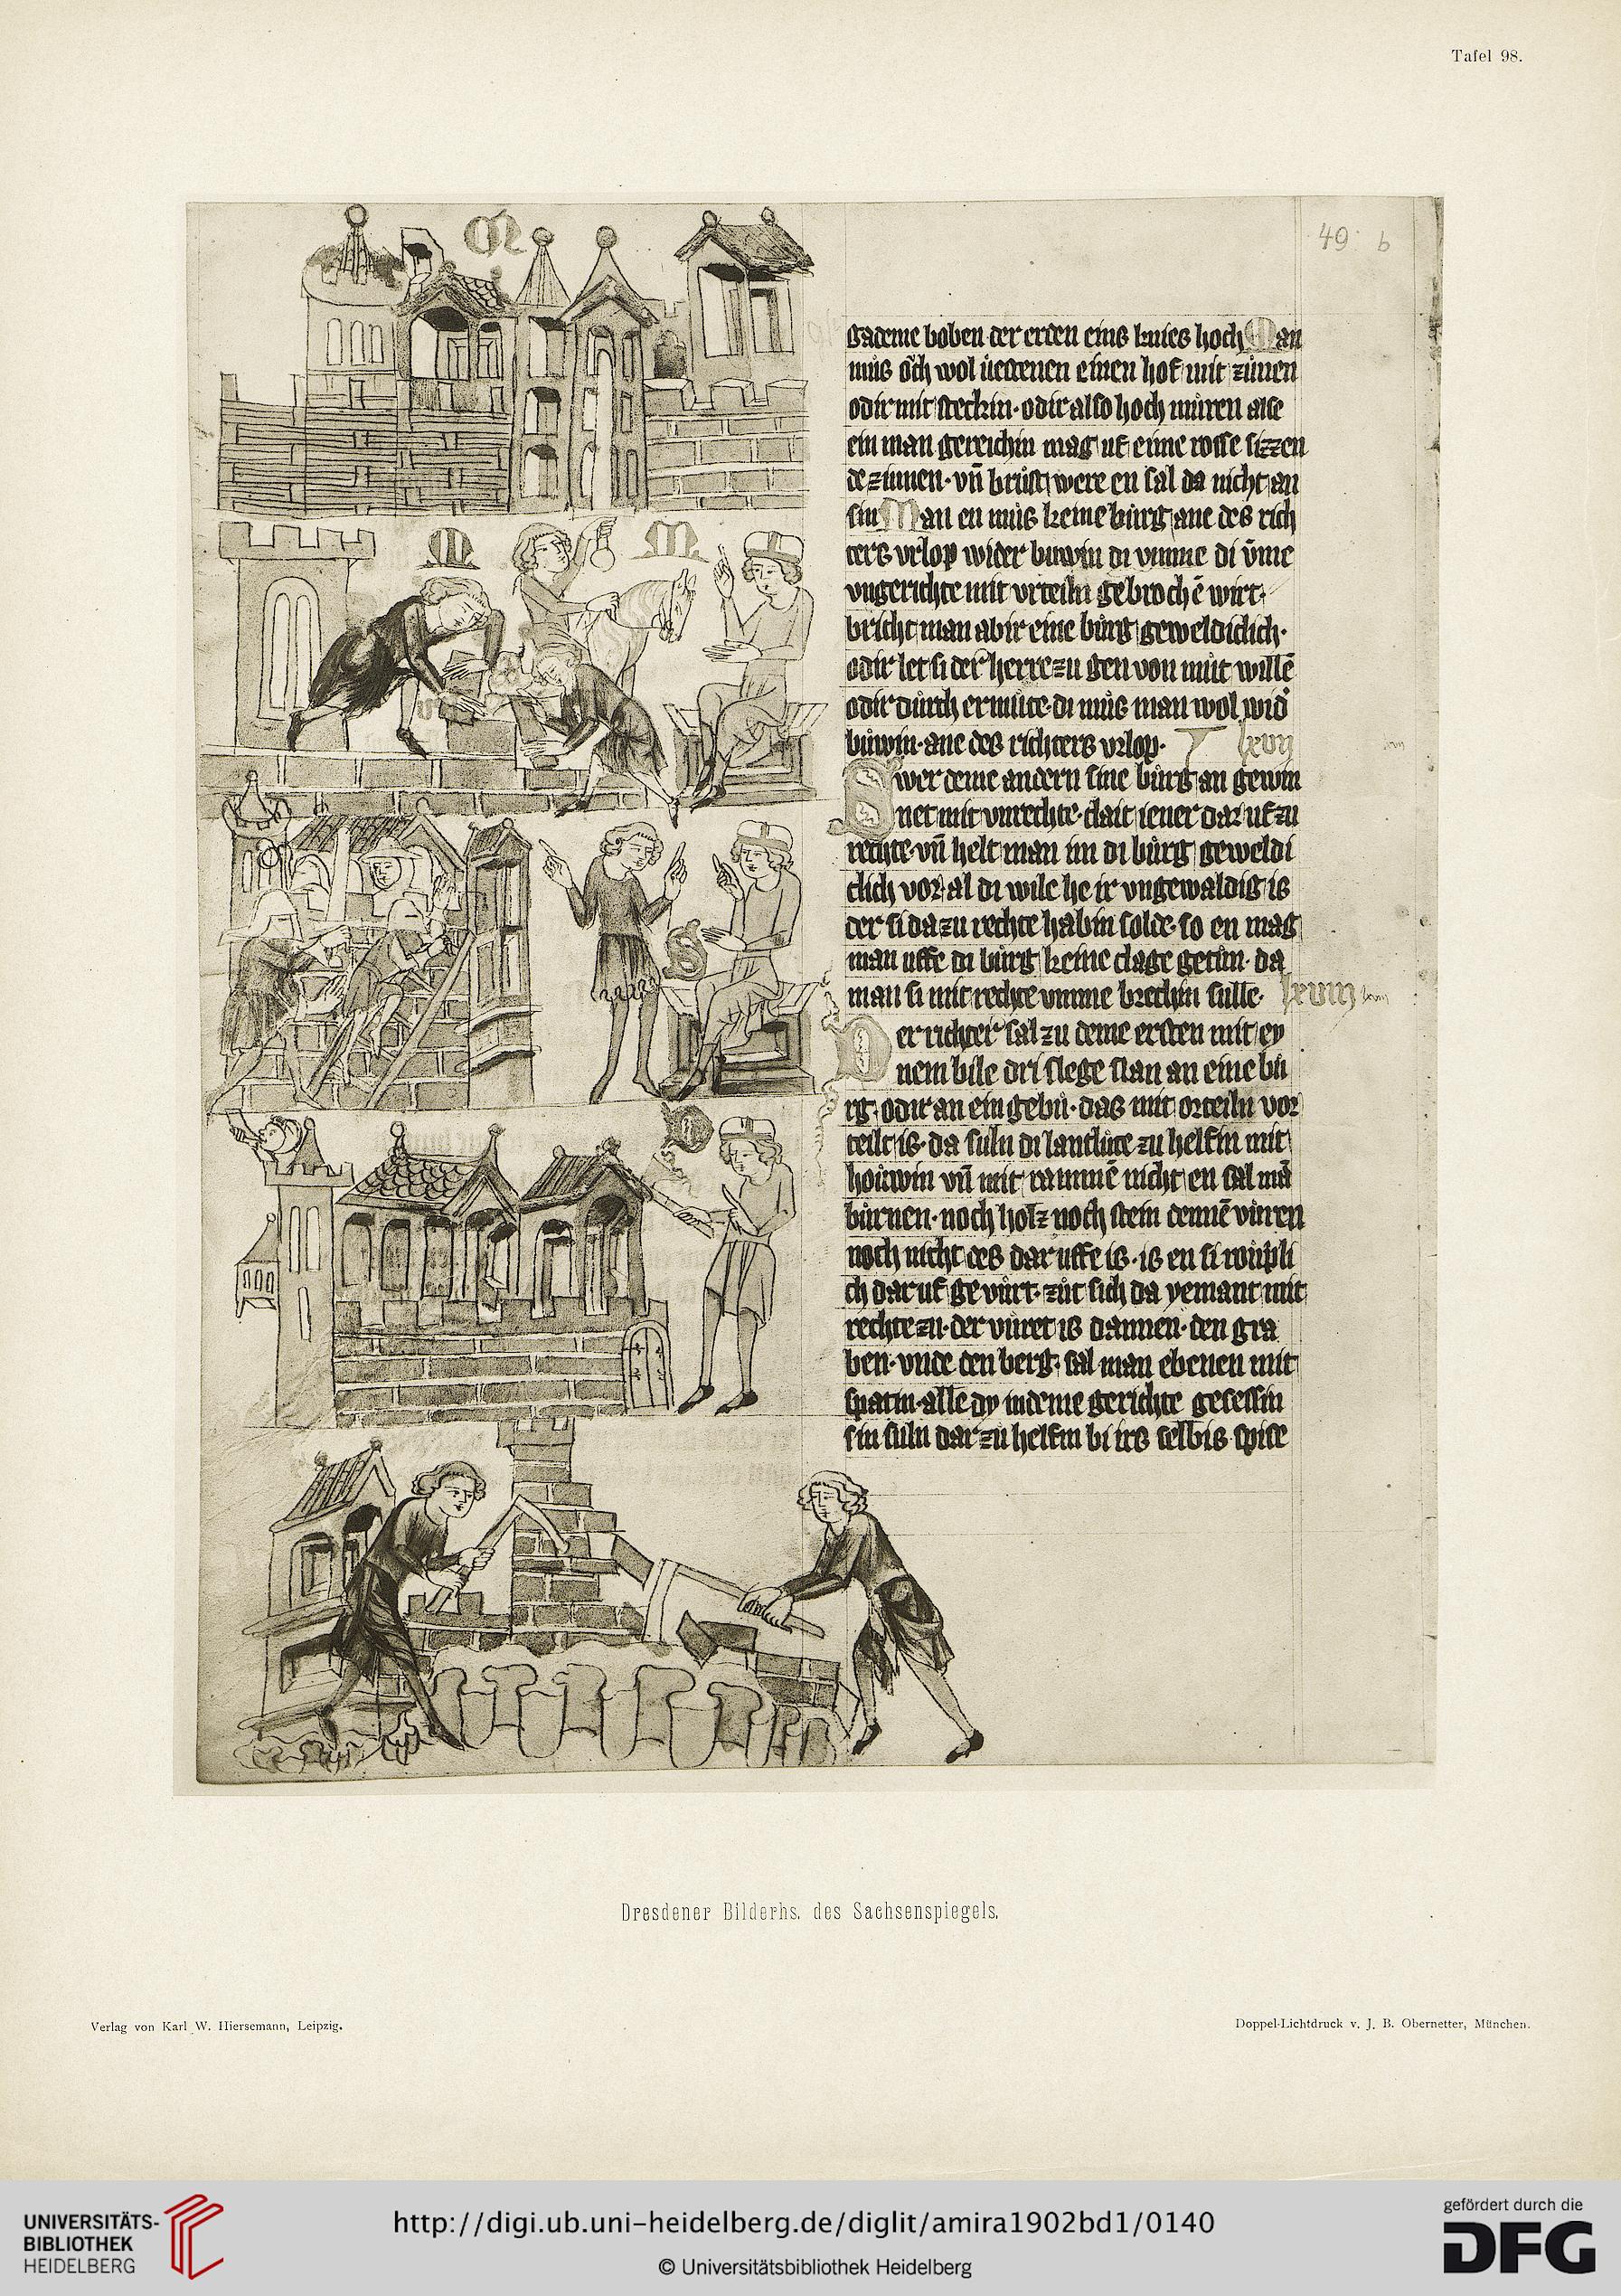 Tafel 98.
49 b
gademe boben der erden eins knies hoch Man
mus och wol uestenen einen hof mit zunen
odir mit steckin · odir also hoch muren alse
ein man gereichin mag uf eime rosse sizzen
de zinnen · vn̄ brustwere en sal da nicht an
sin Man en mus keine burg ane des rich
ters vrlop wider buwin di vmme di vm̄e
vngerichte mit vrteiln gebrochē wirt ·
bricht man abir eine burg geweldiclich ·
odir let si der herre zu gen von mut willē
odir durch ermute · di mus man wol wid
buwin · ane des richters vrlop · lxvij
Swer deme andern sine burg an gewin
net mit vnrechte · clait iener dar uf zu
rechte · vn̄ helt man im di burg geweldi
clich vor · al di wile he ir vngewaldig is
der si da zu rechte habin solde · so en mag
man uffe di burg keine clage getun · da
man si mit rechte vmme brechin sulle · lxviij
Der richter sal zu deme ersten mit ey
nem bile dri slege slan an eine bu
rg · odir an ein gebu · das mit orteiln vor
teilt is · da suln di lantlute zu helfin mit
houwin vn̄ mit rammē nicht en sal mā
burnen · noch holz noch stein dennē vuren
noch nicht des dar uffe is · is en si roupli
ch dar uf gevurt · zut sich da yemant mit
rechte zu · der vuret is dannen · den gra
ben · vnde den berg · sal man ebenen mit
spatin · alle dy in deme gerichte gesessin
sin suln dar zu helfin bi irs selbis spise
M
M
M
S
D
Dresdener Bilderhs. des Sachsenspiegels.
Verlag von Karl W. Hiersemann, Leipzig.
Doppel-Lichtdruck v. J. B. Obernetter, München.
UNIVERSITÄTS-
BIBLIOTHEK
HEIDELBERG
http://digi.ub.uni-heidelberg.de/diglit/amira1902bd1/0140
© Universitätsbibliothek Heidelberg
gefördert durch die
DFG